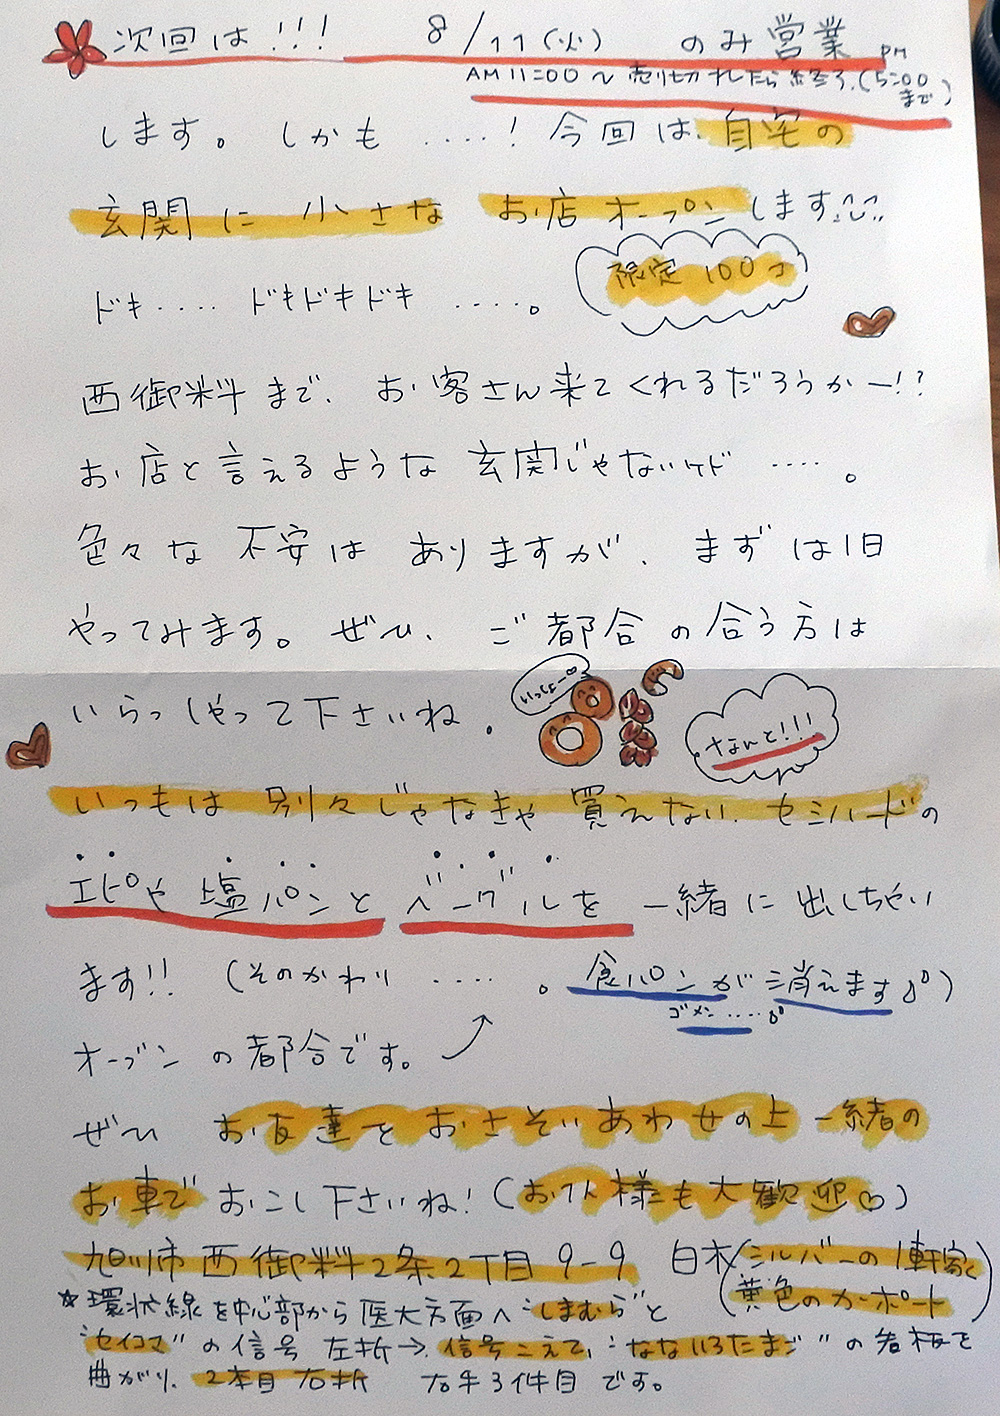 次回は!!! 8/11(火) のみ営業
AM11:00〜売り切れしたら終了.(PM5:00まで)
します。しかも ‥‥! 今回は、自宅の
玄関に 小さな お店オープンします
限定100コ
ドキ‥‥ ドキドキドキ ‥‥。
西御料まで、お客さん来てくれるだろうかー!?
お店と言えるような 玄関じゃないケド ‥‥。
色々な 不安は ありますが、まずは1日
やってみます。ぜひ、ご都合の合う方は
いらっしゃって下さいね。
いっしょー
なんと!!!
いつもは 別々じゃなきゃ 買えない、セミハードの
エピや 塩パンと ベーグルを 一緒に出しちゃい
ます!! (そのかわり ‥‥。食パンが消えます)
ゴメン‥‥
オーブンの都合です。
ぜひ お友達とおさそいあわせの上 一緒の
お車でおこし下さいね!(お1人様も大歓迎♡)
旭川市西御料2条2丁目9-9 白木(シルバーの1軒家
黄色のカーポート)
☆環状線を中心部から医大方面へ"しまむら"と
"セイコマ"の信号 左折→、信号こえて、"なないろたまご"の看板で
曲がり、2本目右折 右手3件目です。